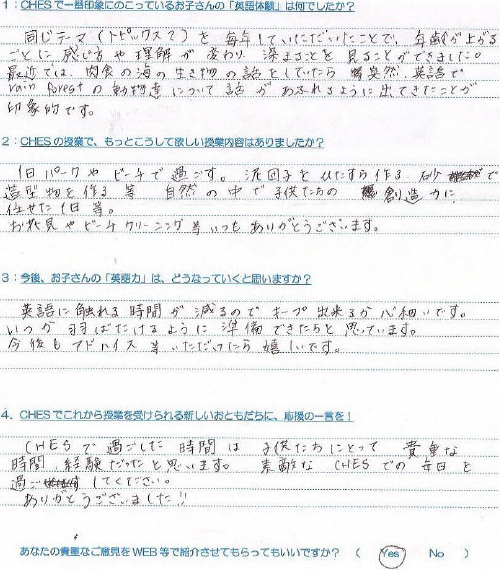 1：CHESで一番印象にのこっているお子さんの「英語体験」は何でしたか？
同じテーマ（トピックス？）を毎年していただいたことで、年齢が上がる
ごとに感じ方や理解が変わり、深まることを見ることができました。
最近では、肉食の海の生き物の話をしていたら 突然、英語で
rain forestの動物達について話があふれるように出てきたことが
印象的です。
2：CHESの授業で、もっとこうして欲しい授業内容はありましたか？
1日パークやビーチで過ごす。泥団子をひたすら作る、砂で
造型物を作る等 自然の中で子供たちの 創造力に
任せた1日等。
お花見やビーチクリーニング等いつもありがとうございます。
3：今後、お子さんの「英語力」は、どうなっていくと思いますか？
英語に触れる時間が減るのでキープ出来るか心細いです。
いつか羽ばたけるように準備できたらと思っています。
今後もアドバイス等いただけたら嬉しいです。
4．CHESでこれから授業を受けられる新しいおともだちに、応援の一言を！
CHESで過ごした時間は子供たちにとって貴重な
時間、経験だったと思います。素敵なCHESでの毎日を
過ごしてください。
ありがとうございました!!
あなたの貴重なご意見をWEB等で紹介させてもらってもいいですか？（ Yes No ）